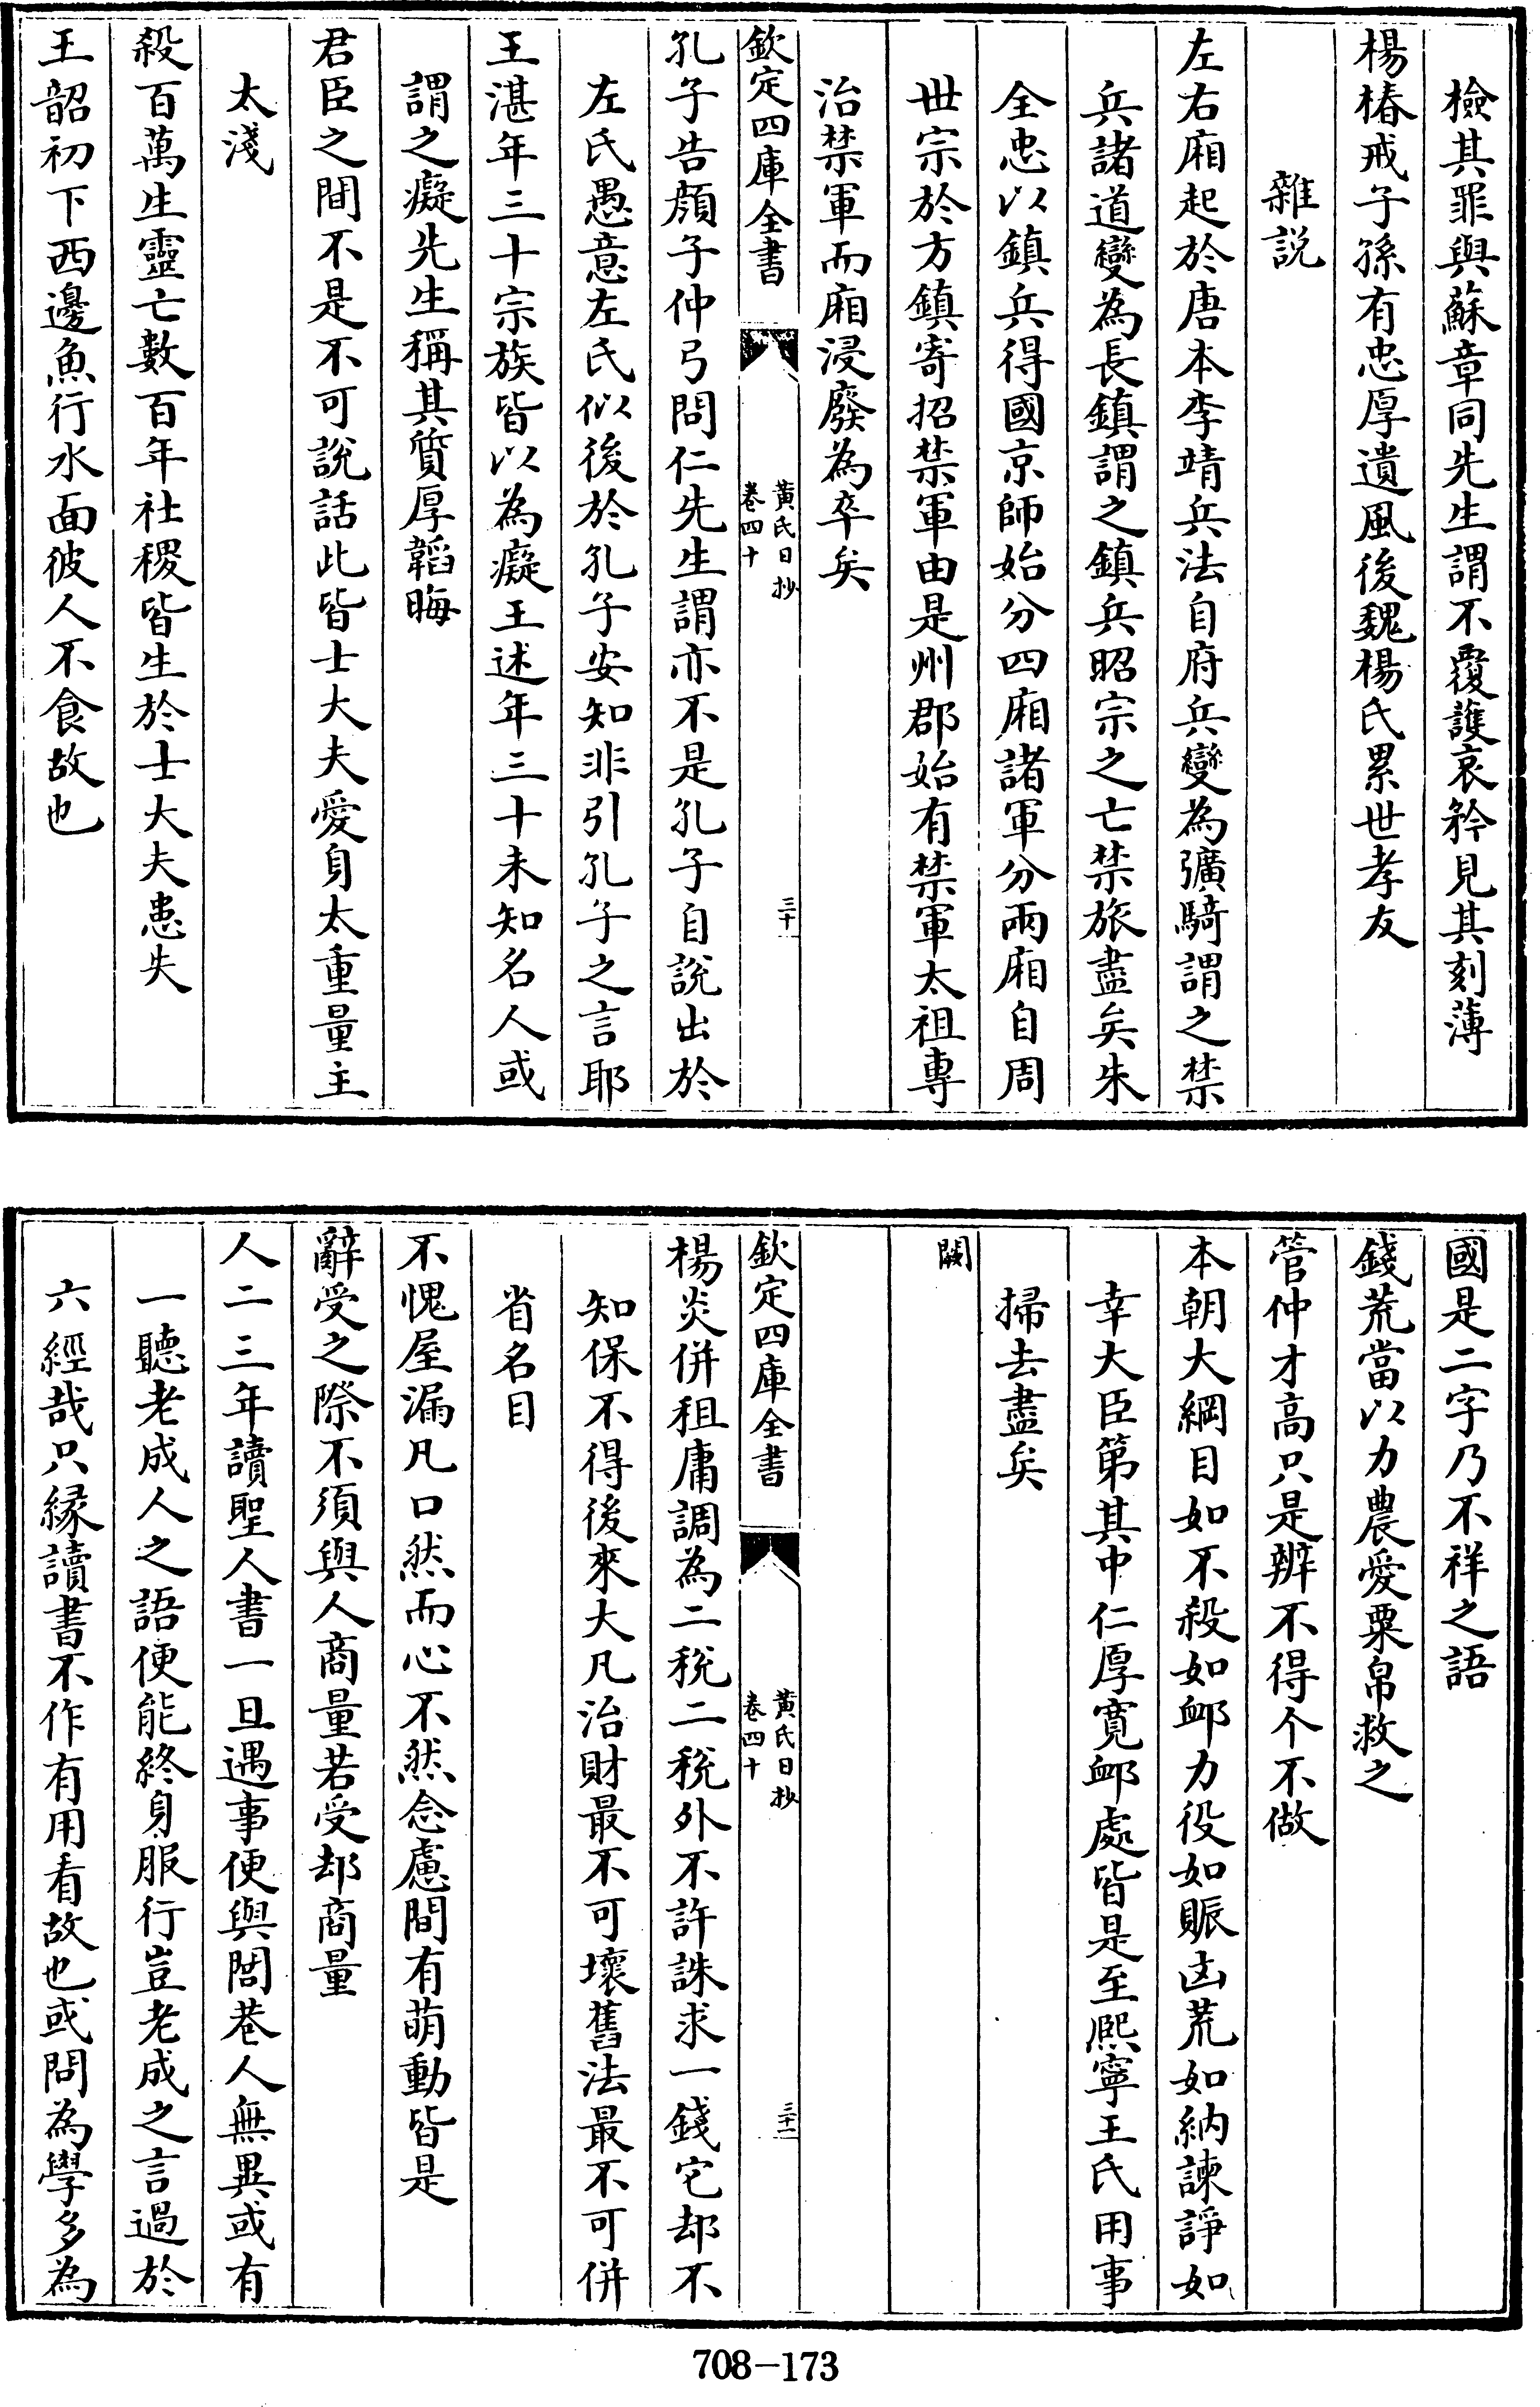 檢其罪與蘇章同先生謂不覆護哀矜見其刻薄
楊椿戒子孫有忠厚遺風後魏楊氏累世孝友
雜説
左右廂起於唐本李靖兵法自府兵變為彍騎謂之禁
兵諸道變為長鎮謂之鎮兵昭宗之亡禁旅盡矣朱
全忠以鎮兵得國京師始分四廂諸軍分兩廂自周
世宗於方鎮寄招禁軍由是州郡始有禁軍太祖專
治禁軍而廂浸廢為卒矣
欽定四庫全書
黃氏日抄
卷四十
三十
孔子告顏子仲弓問仁先生謂亦不是孔子自說出於
左氏愚意左氏似後於孔子安知非引孔子之言耶
王湛年三十宗族皆以為癡王述年三十未知名人或
謂之癡先生稱其質厚韜晦
君臣之間不是不可說話此皆士大夫愛身太重量主
太淺
殺百萬生靈亡數百年社稷皆生於士大夫患失
王韶初下西邊魚行水面彼人不食故也
國是二字乃不祥之語
錢荒當以力農愛粟帛救之
管仲才高只是辨不得个不做
本朝大綱目如不殺如卹力役如賑凶荒如納諫諍如
幸大臣第其中仁厚寬卹處皆是至熙寧王氏用事
掃去盡矣
闕
欽定四庫全書
黃氏日抄
卷四十
三十一
楊炎併租庸調為二稅二稅外不許誅求一錢它却不
知保不得後來大凡治財最不可壞舊法最不可併
省名目
不愧屋漏凡口然而心不然念慮間有萌動皆是
辭受之際不須與人商量若受却商量
人二三年讀聖人書一旦遇事便與閭巷人無異或有
一聽老成人之語便能終身服行豈老成之言過於
六經哉只緣讀書不作有用看故也或問為學多為
708-173